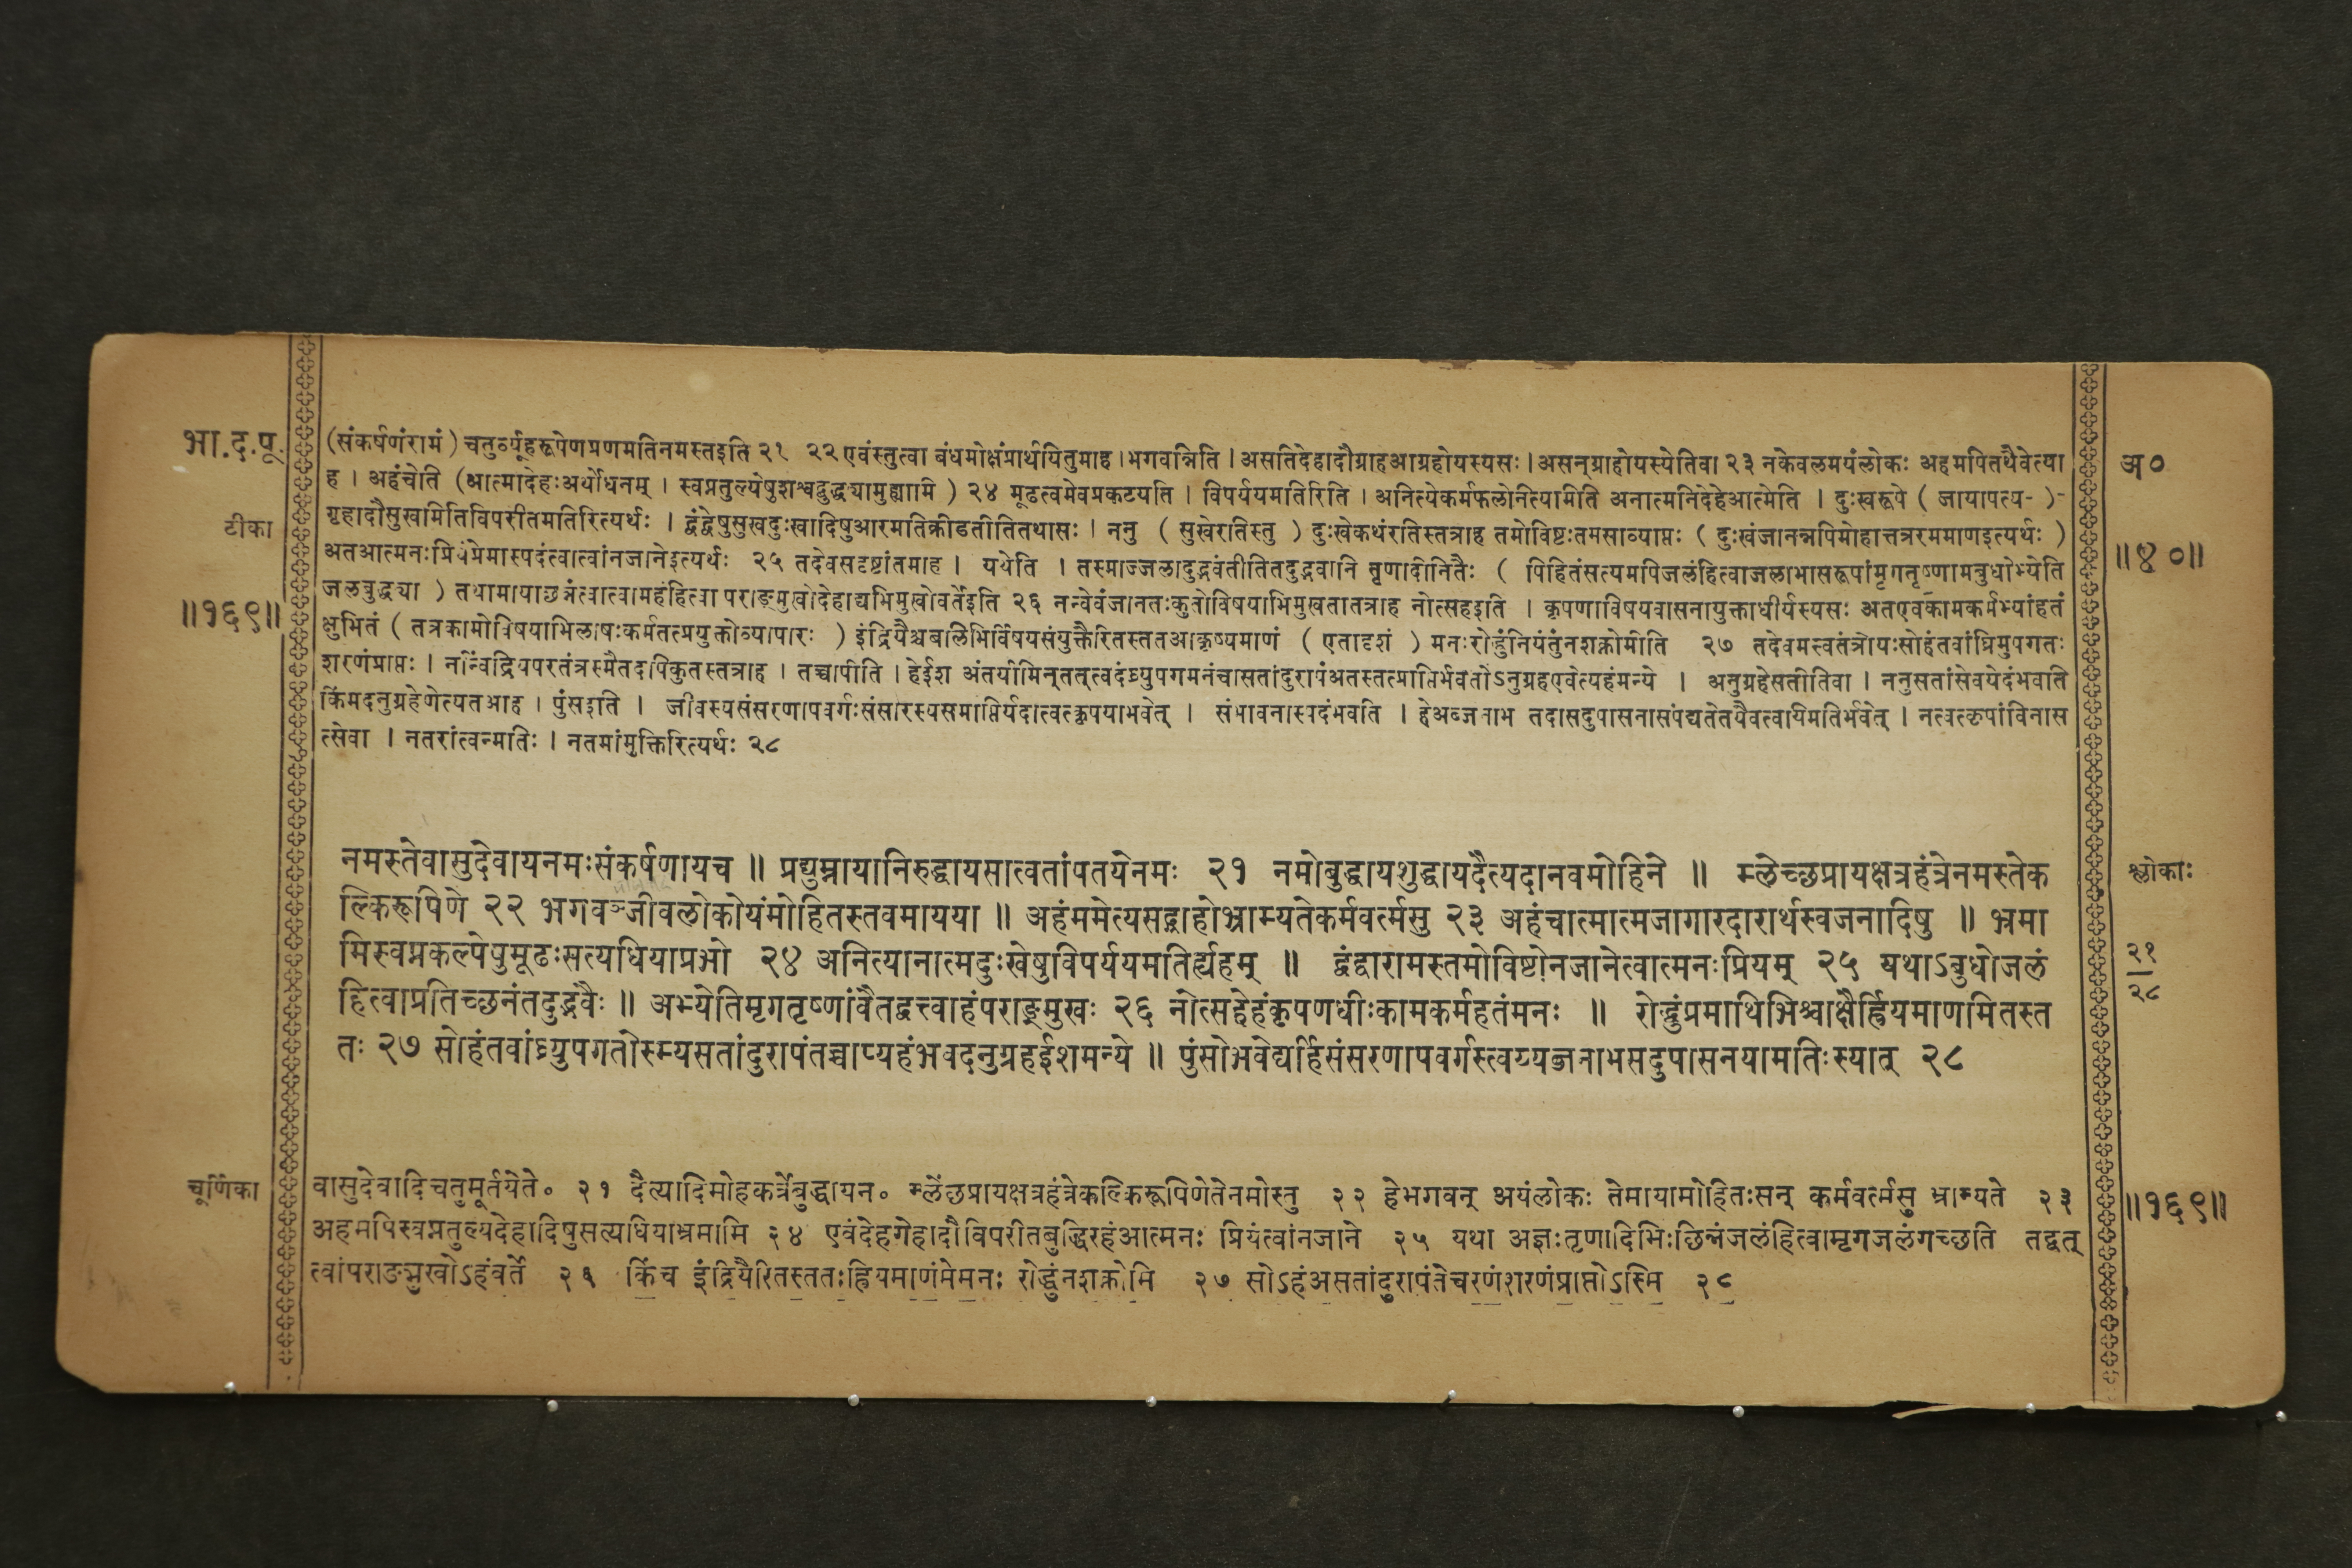 भा.द.पू.
टीका
॥१६९॥
(संकर्षणंरामं) चतुर्व्यूहरूपेणप्रणमतिनमस्तइति २१ २२ एवंस्तुत्वा बंधमोक्षंप्रार्थयितुमाह । भगवन्निति । असतिदेहादौग्राहआग्रहोयस्यसः । असन्ग्राहोयस्येतिवा २३ नकेवलमयंलोकः अहमपितथैवेत्या
ह । अहंचेति (आत्मादेहःअर्थोधनम् । स्वप्नतुल्येषुशश्वद्बुद्ध्यामुह्यामि ) २४ मूढत्वमेवप्रकटयति । विपर्ययमतिरिति । अनित्येकर्मफलेनित्यमिति अनात्मनिदेहेआत्मेति । दुःखरूपे ( जायापत्य- )-
गृहादौसुखमितिविपरीतमतिरित्यर्थः । द्वंद्वेषुसुखदुःखादिषुआरमतिक्रीडतीतितथासः । ननु ( सुखेरतिस्तु ) दुःखेकथंरतिस्तत्राह तमोविष्टःतमसाव्याप्तः ( दुःखंजानन्नपिमोहात्तत्ररममाणइत्यर्थः )
अतआत्मनःप्रियंप्रेमास्पदंत्वात्वांनजानेइत्यर्थः २५ तदेवसदृष्टांतमाह । यथेति । तस्माज्जलादुद्भवंतीतितदुद्भवानि तृणादीनितैः ( पिहितंसत्यमपिजलंहित्वाजलाभासरूपांमृगतृष्णामबुधोभ्येति
जलबुद्ध्या ) तथामायाछन्नंत्वात्वामहंहित्वा पराङ्मुखोदेहाद्यभिमुखोवर्तेइति २६ नन्वेवंजानतःकुतोविषयाभिमुखतातत्राह नोत्सहइति । कृपणाविषयवासनायुक्ताधीर्यस्यसः अतएवकामकर्मभ्यांहतं
क्षुभितं ( तत्रकामोविषयाभिलाषःकर्मतत्प्रयुक्तोव्यापारः ) इंद्रियैश्चबलिभिर्विषयसंयुक्तैरितस्ततआकृष्यमाणं ( एतादृशं ) मनःरोद्धुंनियंतुंनशक्नोमीति २७ तदेवमस्वतंत्रोयःसोहंतवांघ्रिमुपगतः
शरणंप्राप्तः । नन्विंद्रियपरतंत्रस्यैतदपिकुतस्तत्राह । तच्चापीति । हेईश अंतर्यामिन्तत्त्वदंघ्र्युपगमनंचासतांदुरापंअतस्तत्प्राप्तिर्भवतोऽनुग्रहएवेत्यहंमन्ये । अनुग्रहेसतीतिवा । ननुसतांसेवयेदंभवति
किंमदनुग्रहेणेत्यतआह । पुंसइति । जीवस्यसंसरणापवर्गःसंसारस्यसमाप्तिर्यदात्वत्कृपयाभवेत् । संभावनास्पदंभवति । हेअब्जनाभ तदासदुपासनासंपद्यतेतयैवत्वयिमतिर्भवेत् । नत्वत्कृपांविनास
त्सेवा । नतरांत्वन्मतिः । नतमांमुक्तिरित्यर्थः २८
अ०
॥४०॥
नमस्तेवासुदेवायनमःसंकर्षणायच ॥ प्रद्युम्नायानिरुद्धायसात्वतांपतयेनमः २१ नमोबुद्धायशुद्धायदैत्यदानवमोहिने ॥ म्लेच्छप्रायक्षत्रहंत्रेनमस्तेक
ल्किरूपिणे २२ भगवञ्जीवलोकोयंमोहितस्तवमायया ॥ अहंममेत्यसद्ग्राहोभ्राम्यतेकर्मवर्त्मसु २३ अहंचात्मात्मजागारदारार्थस्वजनादिषु ॥ भ्रमा
मिस्वप्नकल्पेषुमूढःसत्यधियाप्रभो २४ अनित्यानात्मदुःखेषुविपर्ययमतिर्ह्यहम् ॥ द्वंद्वारामस्तमोविष्टोनजानेत्वात्मनःप्रियम् २५ यथाऽबुधोजलं
हित्वाप्रतिच्छनंतदुद्भवैः ॥ अभ्येतिमृगतृष्णांवैतद्वत्त्वाहंपराङ्मुखः २६ नोत्सहेहंकृपणधीःकामकर्महतंमनः ॥ रोद्धुंप्रमाथिभिश्चाक्षैर्ह्रियमाणमितस्त
तः २७ सोहंतवांघ्र्युपगतोस्म्यसतांदुरापंतच्चाप्यहंभवदनुग्रहईशमन्ये ॥ पुंसोभवेद्यर्हिसंसरणापवर्गस्त्वय्यब्जनाभसदुपासनयामतिःस्यात् २८
श्लोकाः
२१
२८
चूर्णिका
वासुदेवादिचतुमूर्तयेते० २१ दैत्यादिमोहकर्त्रेबुद्धायन० म्लेंछप्रायक्षत्रहंत्रेकल्किरूपिणेतेनमोस्तु २२ हेभगवन् अयंलोकः तेमायामोहितःसन् कर्मवर्त्मसु भ्राम्यते २३
अहमपिस्वप्नतुल्यदेहादिषुसत्यधियाभ्रमामि २४ एवंदेहगेहादौविपरीतबुद्धिरहंआत्मनः प्रियंत्वांनजाने २५ यथा अज्ञःतृणादिभिःछिन्नंजलंहित्वामृगजलंगच्छति तद्वत्
त्वांपराङ्मुखोऽहंवर्ते २६ किंच इंद्रियैरितस्ततःह्रियमाणंमेमनः रोद्धुंनशक्नोमि २७ सोऽहंअसतांदुरापंतेचरणंशरणंप्राप्तोऽस्मि २८
॥१६९॥